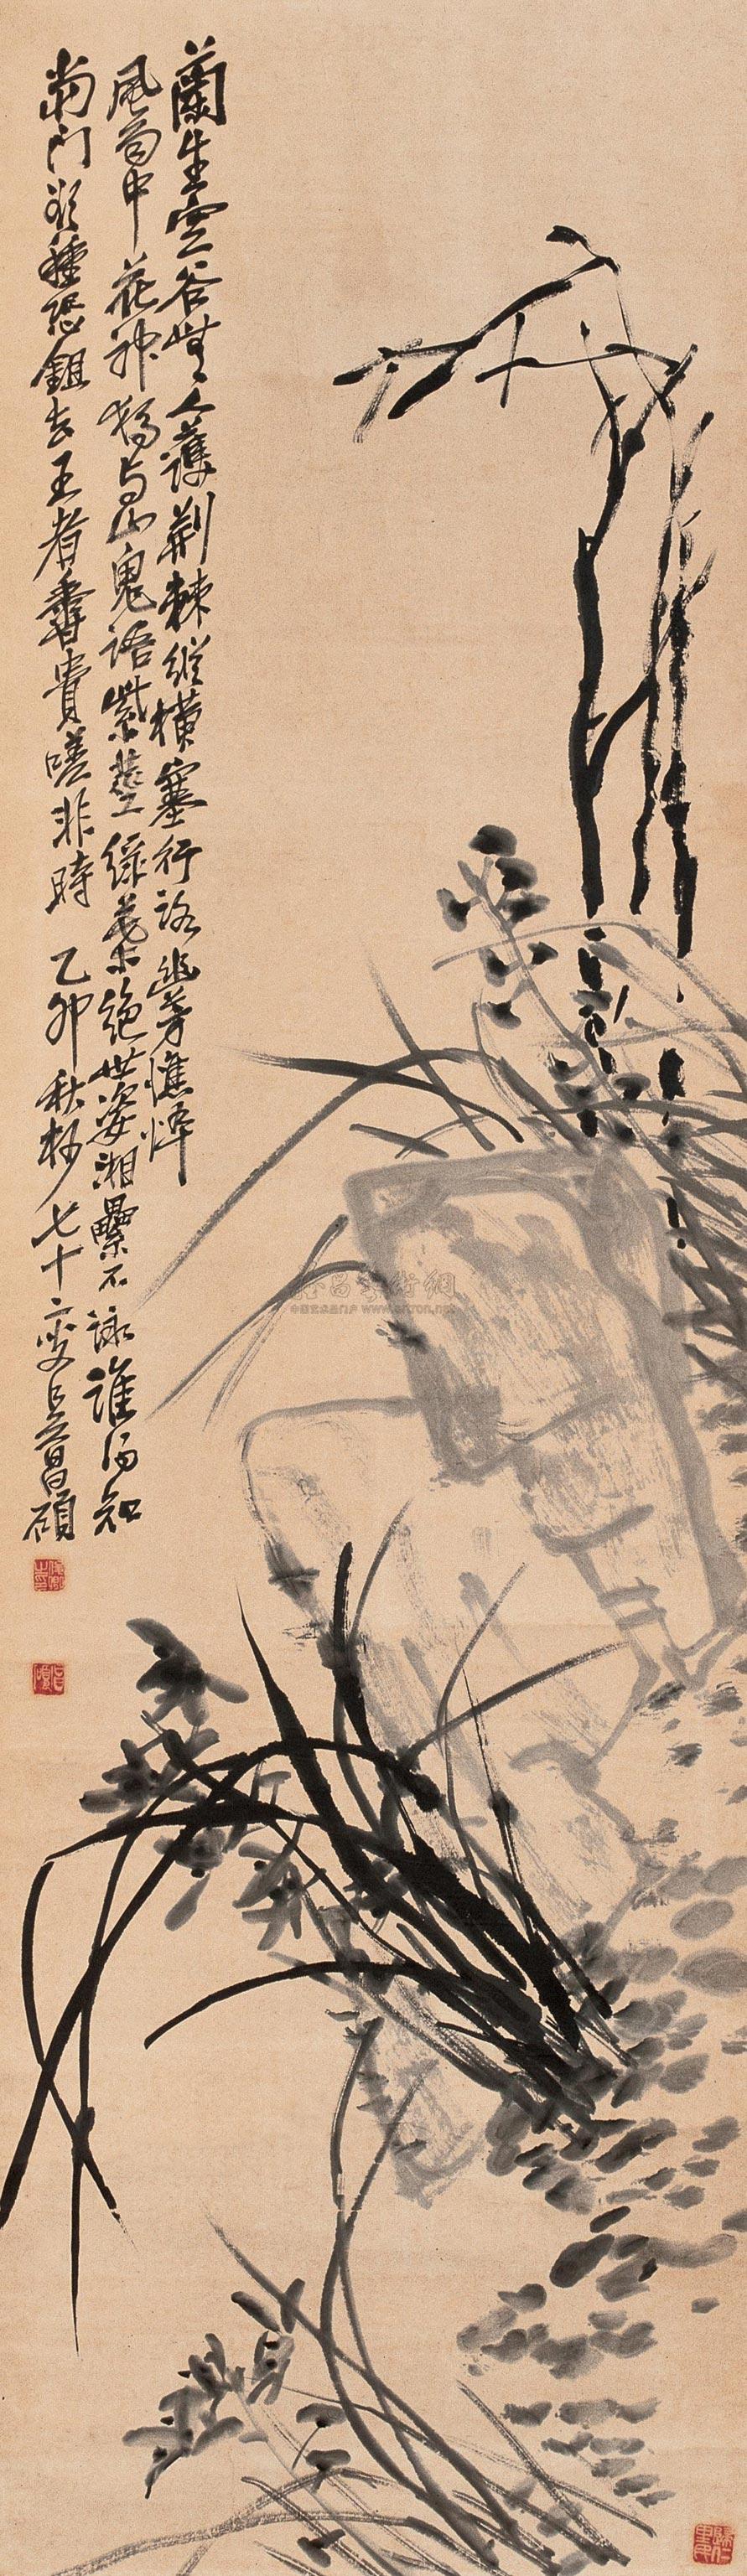 蘭生空谷無人護荆棘縱橫塞行路幽芳憔悴
風雨中花神獨與山鬼語紫莖綠葉絕世姿湘纍不詠誰得知
當門欲種恐鉏去王者香貴嗟非時 乙卯秋杪七十二叟吳昌碩
www.artron.net
歸仁里民